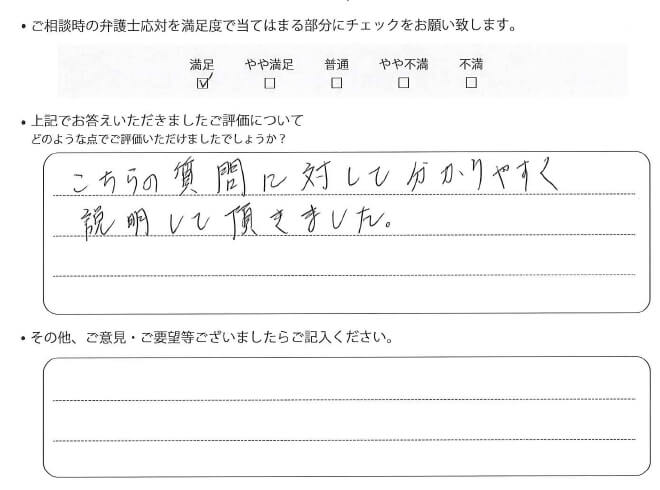 ・ご相談時の弁護士応対を満足度で当てはまる部分にチェックをお願い致します。
満足 やや満足 普通 やや不満 不満
☑ ☐ ☐ ☐ ☐
・上記でお答えいただきましたご評価について
どのような点でご評価いただけましたでしょうか？
こちらの質問に対して分かりやすく
説明して頂きました。
・その他、ご意見・ご要望等ございましたらご記入ください。